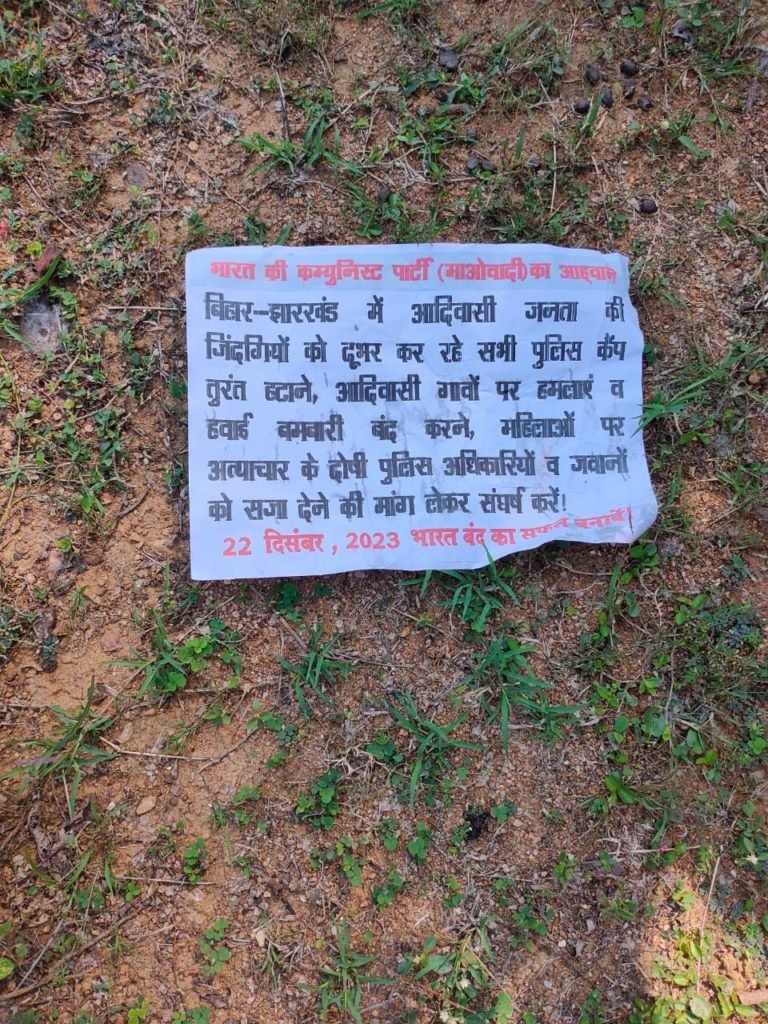 भारत की कम्युनिस्ट पार्टी (माओवादी) का आह्वान
बिहार–झारखंड में आदिवासी जनता की
जिंदगियों को दूभर कर रहे सभी पुलिस कैंप
तुरंत हटाने, आदिवासी गावों पर हमलाएं व
हवाई बमबारी बंद करने, महिलाओं पर
अत्याचार के दोषी पुलिस अधिकारियों व जवानों
को सजा देने की मांग लेकर संघर्ष करें!
22 दिसंबर , 2023 भारत बंद का सफल बनावें!